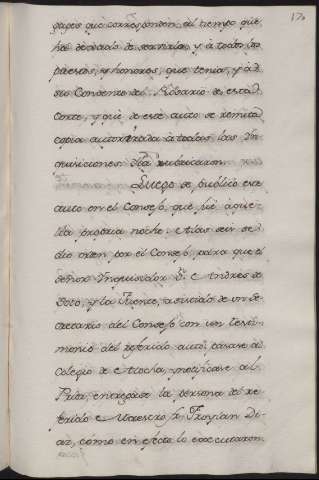 170
gages que corresponden al tiempo que
ha dexado de servirlo, y à todos los
puestos, y honores, que tenia, y à
su Convento del Rosario de esta
Corte, y que de este auto se remita
copia autorizada à todas las In-
quisiciones. Y la rubricaron.
Luego se publicò este
auto en el Consejo, que fuè aque-
lla propria noche à las seis se
dio orden por el Consejo, para que el
Señor Inquisidor Dn. Andres de
Soto, y la Fuente, asistido de un Se-
cretario del Consejo con un testi-
monio del referido auto, pasase al
Colegio de Atocha, notificase al
Prior, entregase la persona del re-
ferido Maestro fr. Froylan Di-
az, como en efecto lo executaron.